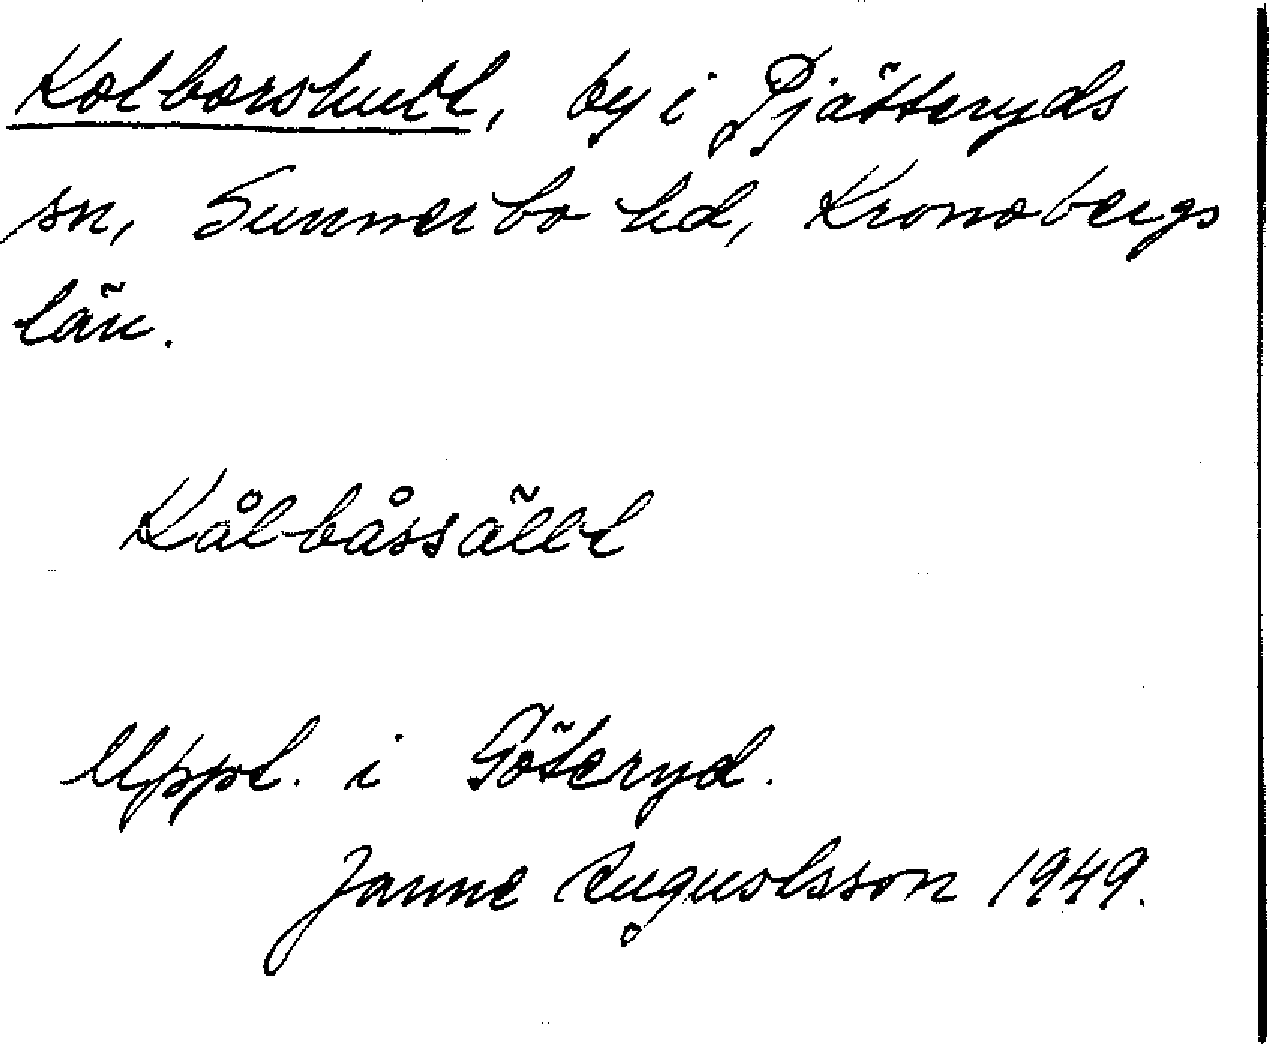 Kolborshult, by i Pjätteryds
sn, Sunnerbo hd, Kronobergs
län.
Kålbåssällt
Uppt. i Göteryd.
Janne Augustsson 1949.